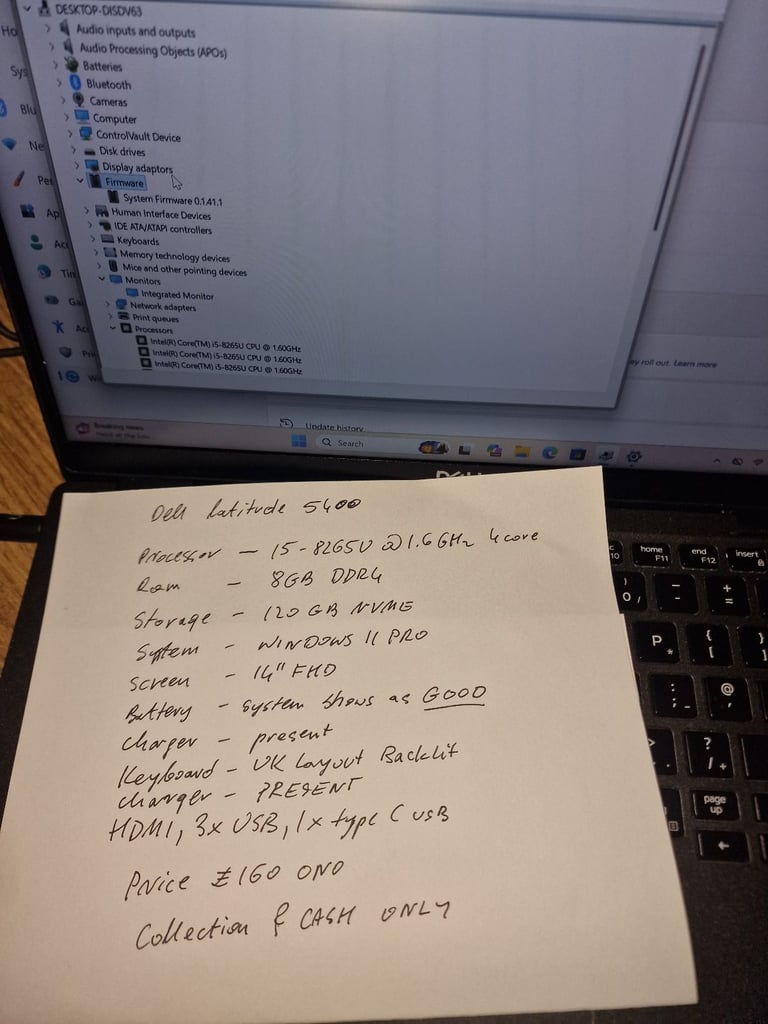 DESKTOP-DISDV63
Audio inputs and outputs
Audio Processing Objects (APOs)
Batteries
Bluetooth
Cameras
Computer
ControlVault Device
Disk drives
Display adaptors
Firmware
System Firmware 0.1.41.1
Human Interface Devices
IDE ATA/ATAPI controllers
Keyboards
Memory technology devices
Mice and other pointing devices
Monitors
Integrated Monitor
Network adapters
Print queues
Processors
Intel(R) Core(TM) i5-8265U CPU @ 1.60GHz
Intel(R) Core(TM) i5-8265U CPU @ 1.60GHz
Intel(R) Core(TM) i5-8265U CPU @ 1.60GHz
Ho
Sys
Blu
Ne
Per
Ap
Ac
Tin
Ga
Ac
Pri
W
ey roll out. Learn more
Update history
Breaking news
Search
Dell Latitude 5400
Processor - i5-8265U @1.6GHz 4core
Ram - 8GB DDR4
Storage - 120GB NVME
System - WINDOWS 11 PRO
Screen - 14" FHD
Battery - system shows as GOOD
Charger - present
Keyboard - UK Layout Backlit
Charger - PRESENT
HDMI, 3x USB, 1x type C USB
Price £160 ONO
Collection & CASH ONLY
F10
home F11
end F12
insert
) 0
_ -
+ =
P
{ [
} ]
: ;
@ '
>
? /
page up